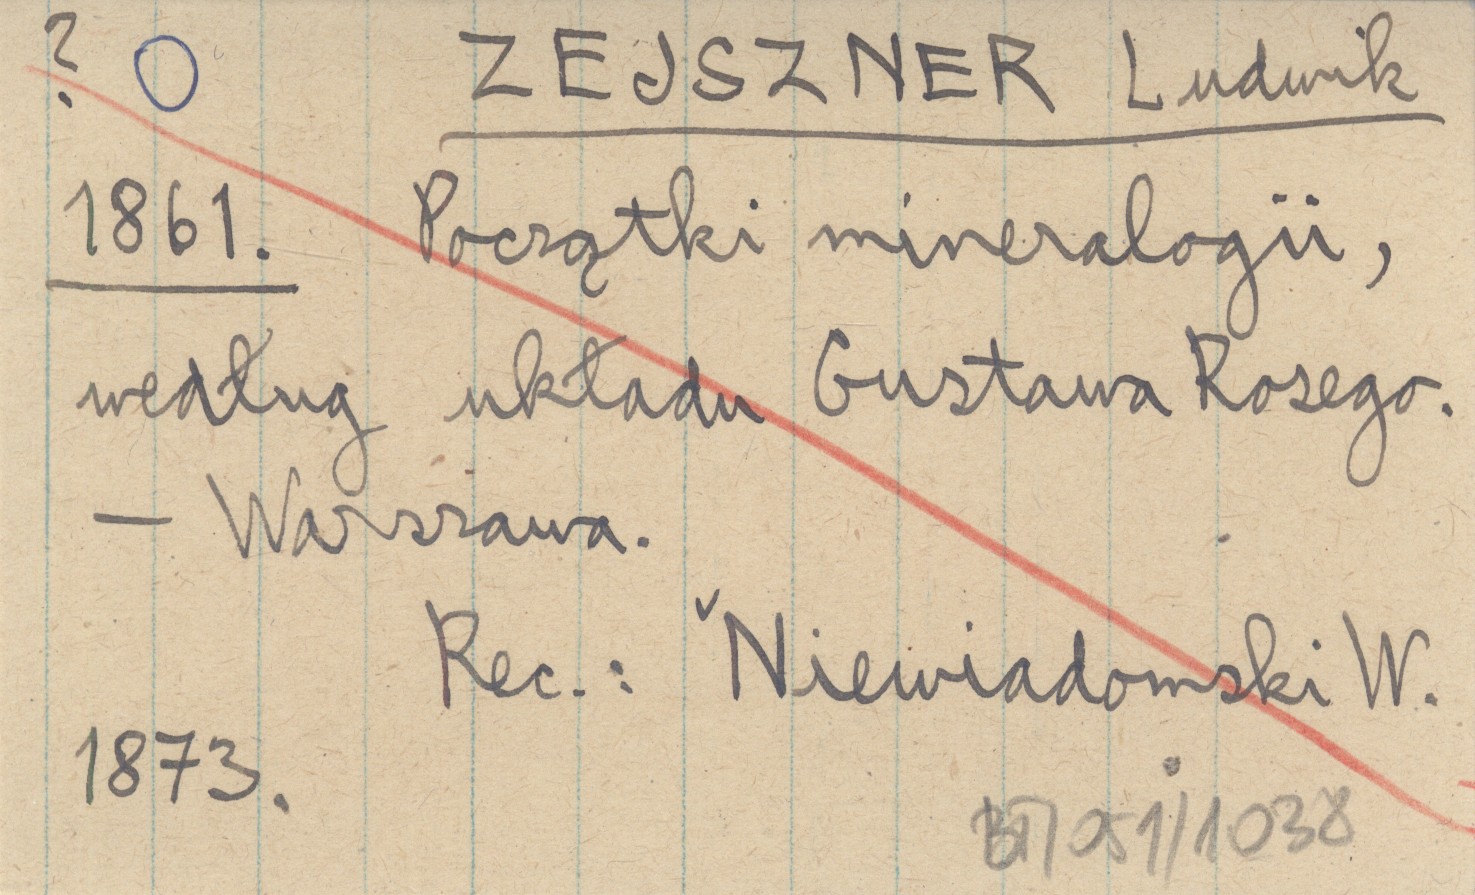 ? O ZEJSZNER Ludwik
1861. Początki mineralogii,
według układu Gustawa Rosego.
— Warszawa.
Rec.: ˇNiewiadomski W.
1873.
/051/1038